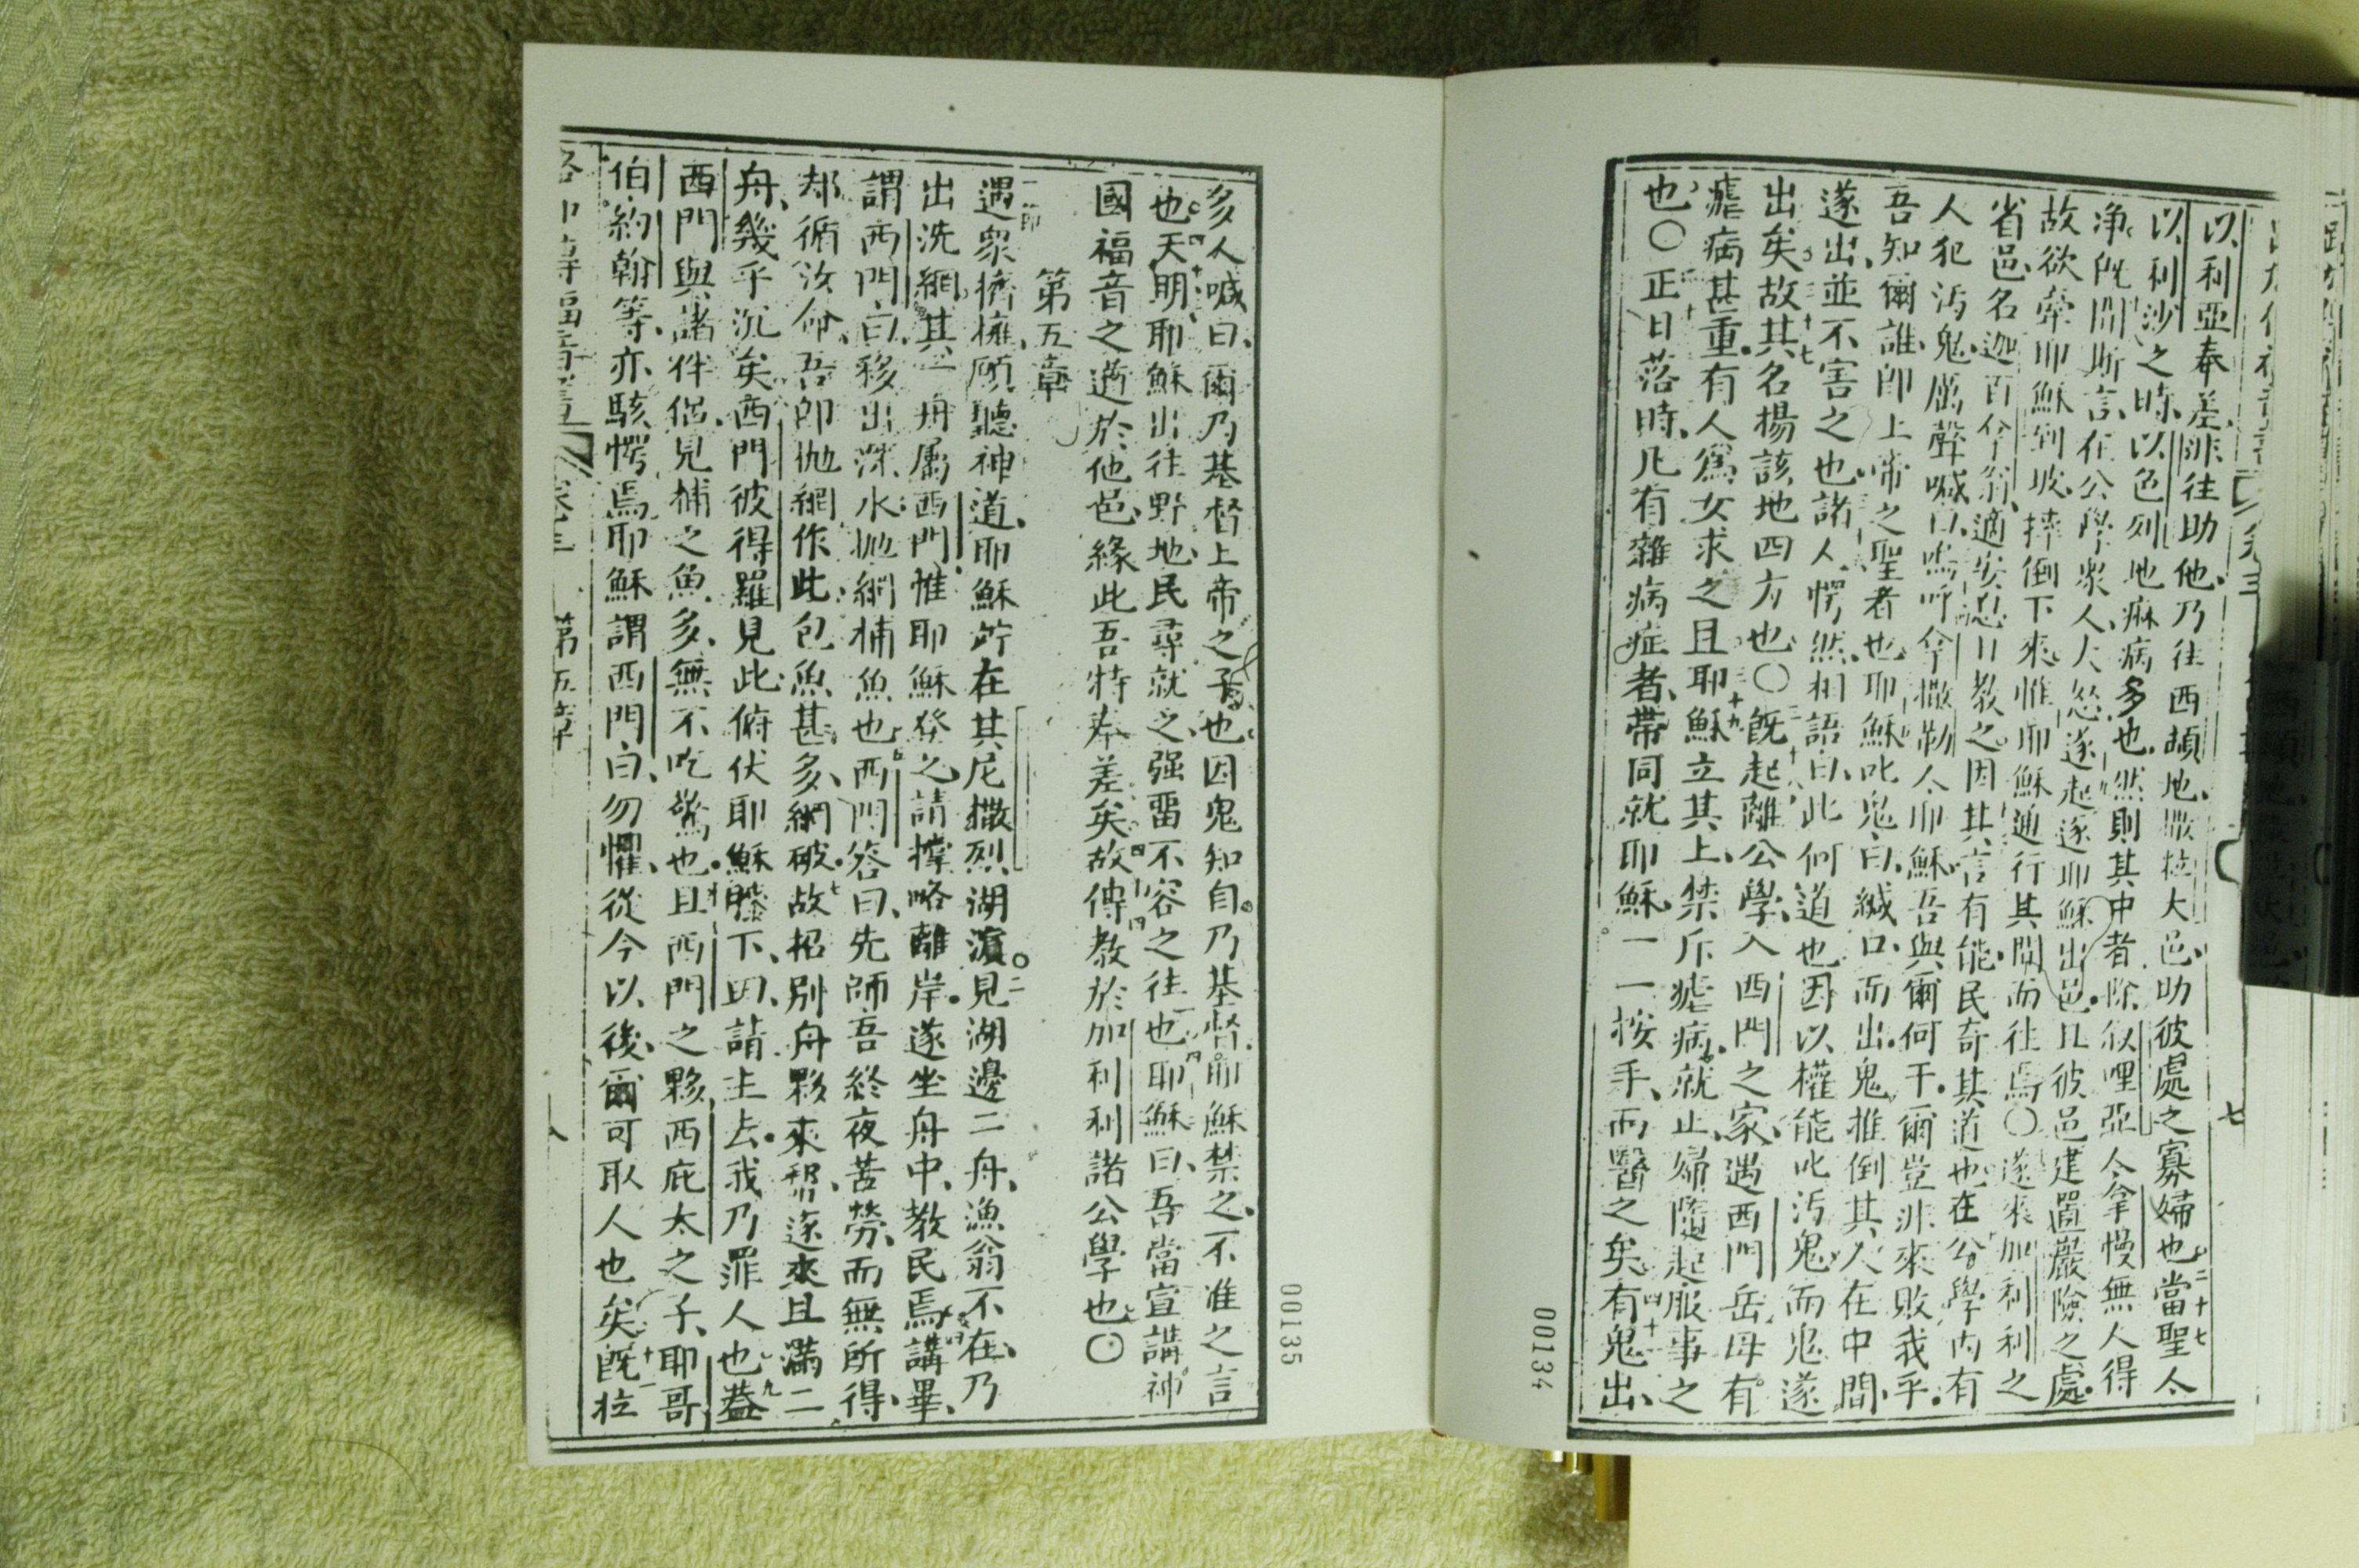 以利亞奉差、非往助他、乃往西頓地、撒拉大邑、助彼處之寡婦也、二十七當聖人
以利沙之時、以色列地麻病多也、然則其中者、除叙哩亞人拿慢無人得
淨、既聞斯言、在公學衆人大怒、遂起逐耶穌出邑、且彼邑建置巖險之處、
故欲牽耶穌到坡、摔倒下來、惟耶穌通行其間而往焉〇遂來加利利之
省邑、名迦百拿翁、適安息日教之、因其言有能、民奇其道也、在公學內有
人犯汚鬼、厲聲喊曰、嗚呼拿撒勒人耶穌、吾與爾何干、爾豈非來敗我乎、
吾知爾誰、卽上帝之聖者也、耶穌叱鬼、曰、緘口而出、鬼推倒其人在中間、
遂出、並不害之也、諸人愕然、相語曰、此何道也、因以權能叱汚鬼、而鬼遂
出矣、三十七故其名揚該地四方也〇三十八既起離公學、入西門之家、遇西門岳母有
瘧病甚重、有人爲女求之、三十九且耶穌立其上、禁斥瘧病、就止、婦隨起服事之
也〇正日落時、凡有雜病症者、帶同就耶穌、一一按手、而醫之矣、四十有鬼出、
七
00134
多人喊曰、爾乃基督上帝之子也、因鬼知自乃基督、耶穌禁之、不准之言
也、四十天明、耶穌出往野地、民尋就之、强畱不容之往也、四耶穌曰、吾當宣講神
國福音之道於他邑、緣此吾特奉差矣、四十四故傳教於加利利諸公學也〇
第五章
一節遇衆擠擁、願聽神道、耶穌竚在其尼撒烈湖濵、二見湖邊二舟、漁翁不在、乃
出洗網、其一舟屬西門、惟耶穌登之、請撑略離岸、遂坐舟中、教民焉、四講畢、
謂西門、曰、移出深水、抛網捕魚也、五西門答曰、先師、吾終夜苦勞、而無所得、
却循汝命、吾卽抛網、作此、包魚甚多、網破、七故招別舟夥來幇、遂來且滿二
舟、幾乎沉矣、西門彼得羅見此、俯伏耶穌膝下、曰、請主去、我乃罪人也、九蓋
西門與諸伴侶、見捕之魚多、無不吃驚也、十且西門之夥、西庇太之子、耶哥
伯、約翰等、亦駭愕焉、耶穌謂西門、曰、勿懼、從今以後、爾可取人也矣、十一旣拉
第五章
八
00135